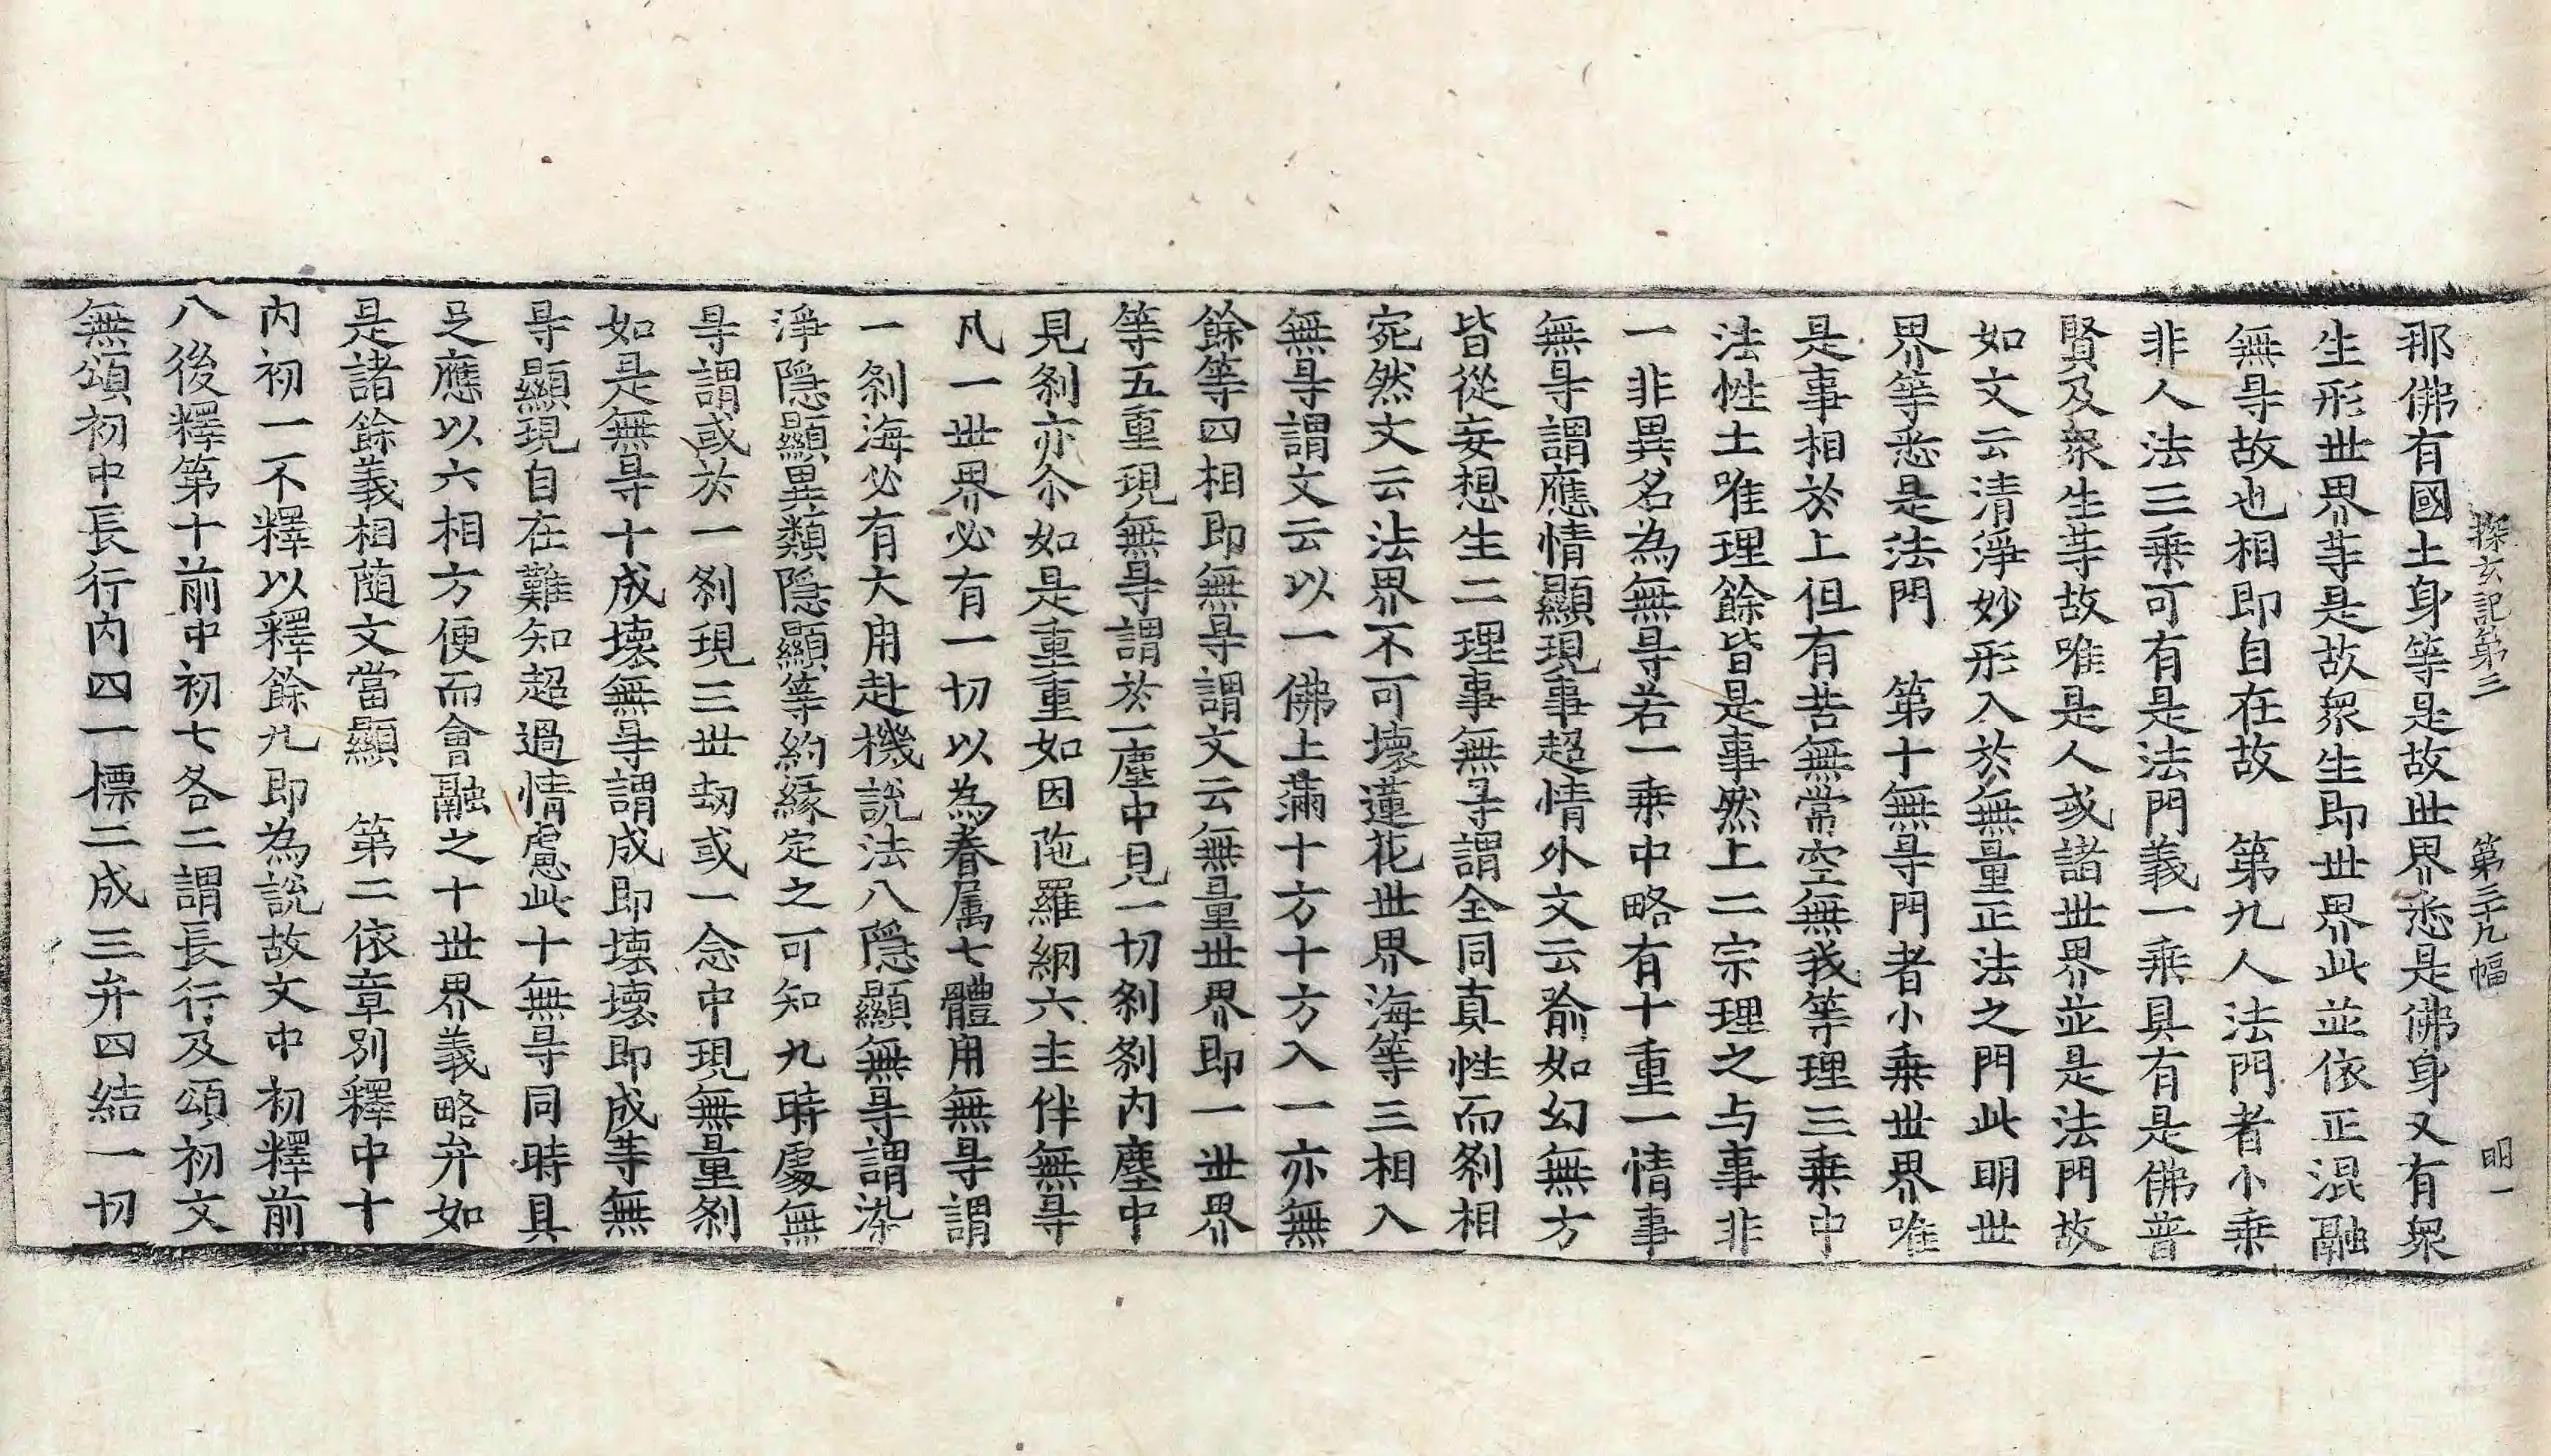 探玄記第三　第三十九幅　明一
那佛有國土身等是故世界悉是佛身又有衆
生形世界等是故衆生即世界此並依正混融
無㝵故也相即自在故　第九人法門者小乗
非人法三乗可有是法門義一乗具有是佛普
賢及衆生等故唯是人或諸世界並是法門故
如文云清淨妙形入於無量正法之門此明世
界等悉是法門　第十無㝵門者小乗世界唯
是事相於上但有苦無常空無我等理三乗中
法性土唯理餘皆是事然上二宗理之与事非
一非異名為無㝵若一乗中略有十重一情事
無㝵謂應情顯現事超情外文云喻如幻無方
皆從妄想生二理事無㝵謂全同真性而刹相
宛然文云法界不可壞蓮花世界海等三相入
無㝵謂文云以一佛土滿十方十方入一亦無
餘等四相即無㝵謂文云無量世界即一世界
等五重現無㝵謂於一塵中見一切刹刹内塵中
見刹亦尒如是重重如因陁羅網六主伴無㝵
凡一世界必有一切以為眷属七體用無㝵謂
一刹海必有大用赴機說法八隱顯無㝵謂染
淨隱顯異類隱顯等約緣定之可知九時處無
㝵謂或於一刹現三世劫或一念中現無量刹
如是無㝵十成壊無㝵謂成即壊壊即成等無
㝵顯現自在難知超過情慮此十無㝵同時具
足應以六相方便而會融之十世界義略弁如
是諸餘義相随文當顯　第二依章別釋中十
内初一不釋以釋餘九即為說故文中初釋前
八後釋第十前中初七各二謂長行及頌初文
無頌初中長行内四一標二成三弁四結一切